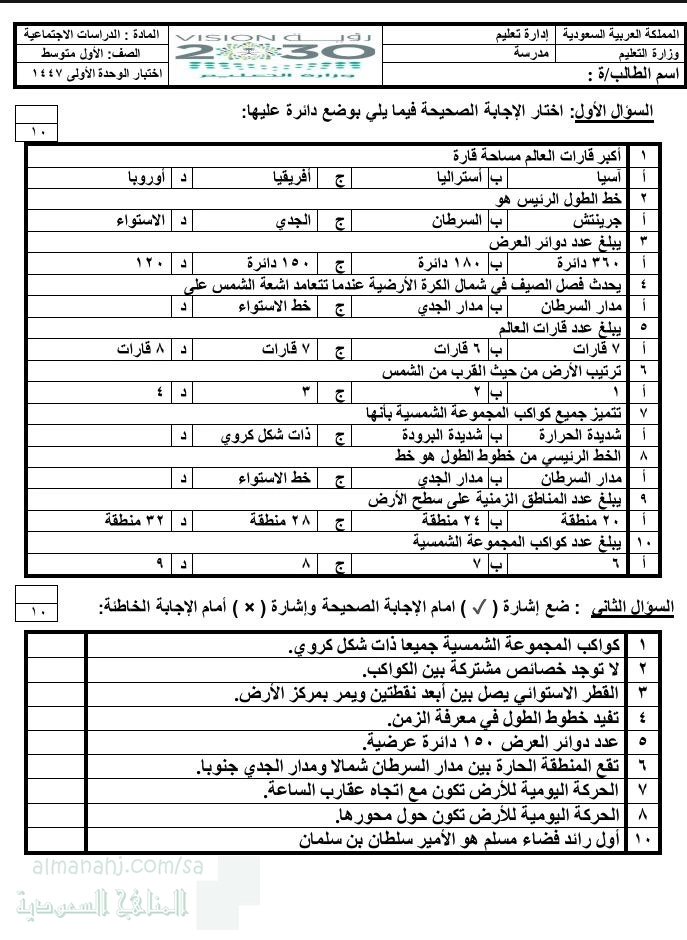 المملكة العربية السعودية إدارة تعليم VISION رؤيـــة المادة : الدراسات الاجتماعية
وزارة التعليم مدرسة 2030 الصف: الأول متوسط
اسم الطالب/ة : وزارة التعليم اختبار الوحدة الأولى ١٤٤٧
السؤال الأول: اختار الإجابة الصحيحة فيما يلي بوضع دائرة عليها:
١٠
١ أكبر قارات العالم مساحة قارة
أ آسيا ب أستراليا ج أفريقيا د أوروبا
٢ خط الطول الرئيس هو
أ جرينتش ب السرطان ج الجدي د الاستواء
٣ يبلغ عدد دوائر العرض
أ ٣٦٠ دائرة ب ١٨٠ دائرة ج ١٥٠ دائرة د ١٢٠
٤ يحدث فصل الصيف في شمال الكرة الأرضية عندما تتعامد اشعة الشمس على
أ مدار السرطان ب مدار الجدي ج خط الاستواء د
٥ يبلغ عدد قارات العالم
أ ٧ قارات ب ٦ قارات ج ٧ قارات د ٨ قارات
٦ ترتيب الأرض من حيث القرب من الشمس
أ ١ ب ٢ ج ٣ د ٤
٧ تتميز جميع كواكب المجموعة الشمسية بأنها
أ شديدة الحرارة ب شديدة البرودة ج ذات شكل كروي د
٨ الخط الرئيسي من خطوط الطول هو خط
أ مدار السرطان ب مدار الجدي ج خط الاستواء د
٩ يبلغ عدد المناطق الزمنية على سطح الأرض
أ ٢٠ منطقة ب ٢٤ منطقة ج ٢٨ منطقة د ٣٢ منطقة
١٠ يبلغ عدد كواكب المجموعة الشمسية
أ ٦ ب ٧ ج ٨ د ٩
السؤال الثاني : ضع إشارة ( ✓ ) امام الإجابة الصحيحة وإشارة ( × ) أمام الإجابة الخاطئة:
١٠
١ كواكب المجموعة الشمسية جميعا ذات شكل كروي.
٢ لا توجد خصائص مشتركة بين الكواكب.
٣ القطر الاستوائي يصل بين أبعد نقطتين ويمر بمركز الأرض.
٤ تفيد خطوط الطول في معرفة الزمن.
٥ عدد دوائر العرض ١٥٠ دائرة عرضية.
٦ تقع المنطقة الحارة بين مدار السرطان شمالا ومدار الجدي جنوبا.
٧ الحركة اليومية للأرض تكون مع اتجاه عقارب الساعة.
٨ الحركة اليومية للأرض تكون حول محورها.
١٠ أول رائد فضاء مسلم هو الأمير سلطان بن سلمان
almanahj.com/sa
المناهج السعودية